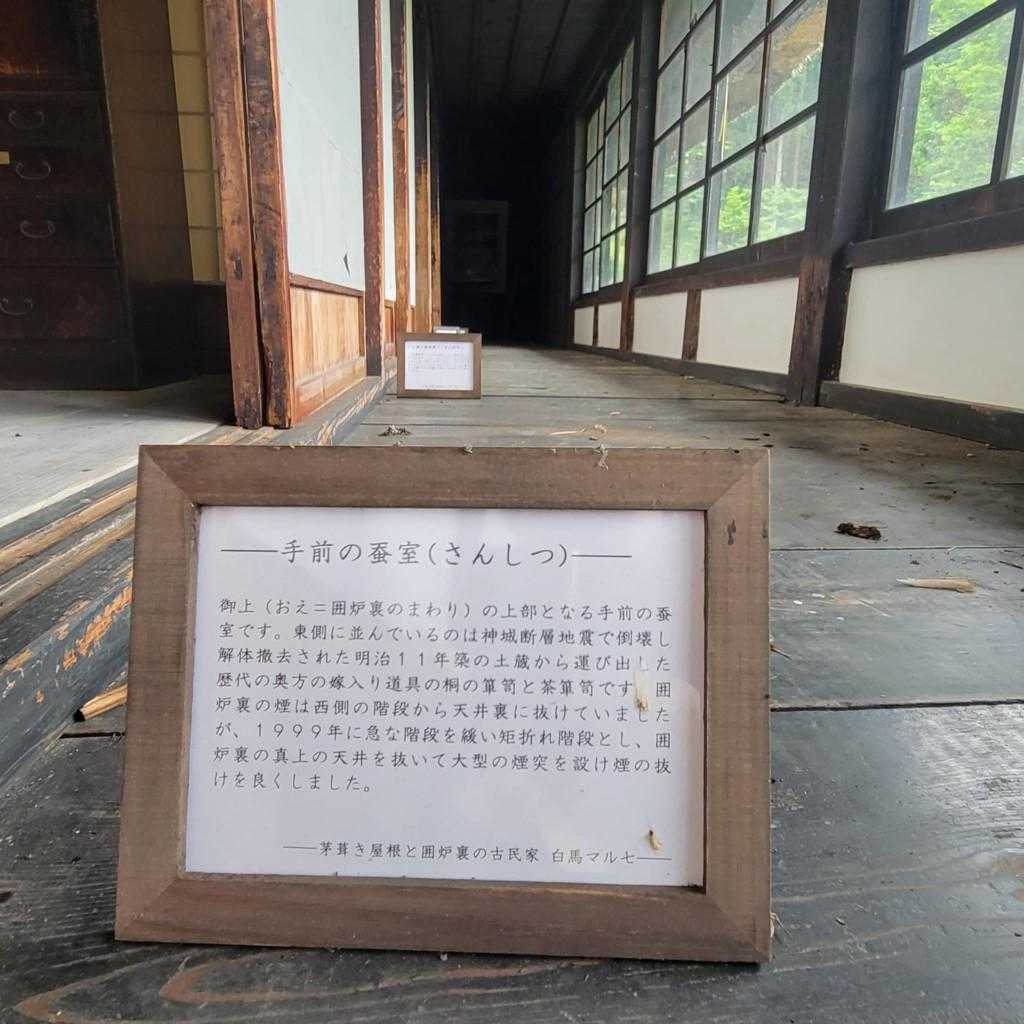 ――手前の蚕室(さんしつ)――
御上(おえ=囲炉裏のまわり)の上部となる手前の蚕
室です。東側に並んでいるのは神城断層地震で倒壊し
解体撤去された明治11年築の土蔵から運び出した
歴代の奥方の嫁入り道具の桐の箪笥と茶箪笥です。囲
炉裏の煙は西側の階段から天井裏に抜けていました
が、1999年に急な階段を緩い矩折れ階段とし、囲
炉裏の真上の天井を抜いて大型の煙突を設け煙の抜
けを良くしました。
――茅葺き屋根と囲炉裏の古民家 白馬マル七――